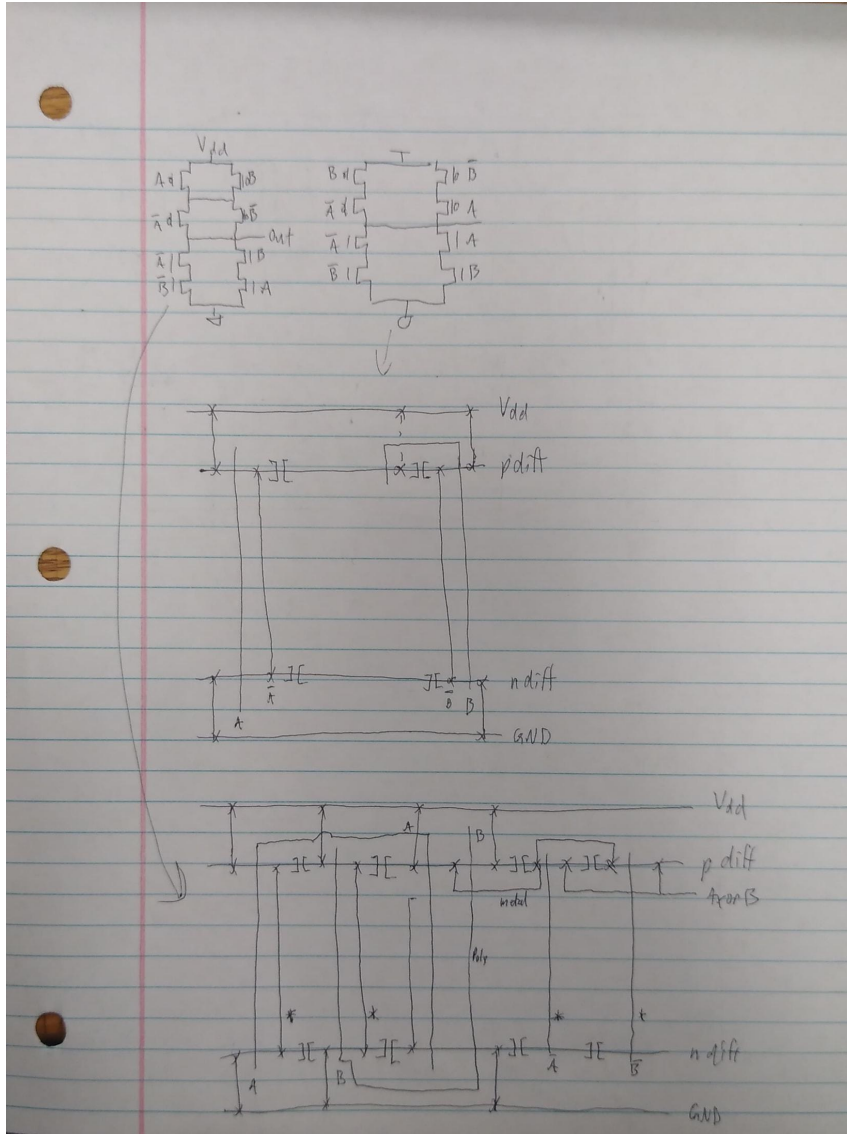 Vdd
A B B B̅
A̅ B̅ A̅ A
out
A̅ B A̅ A
B̅ A B̅ B
Vdd
p diff
n diff
A̅ B̅ B
A
GND
Vdd
A B
p diff
AxorB
metal
Poly
* * * *
n diff
A B A B̅
GND